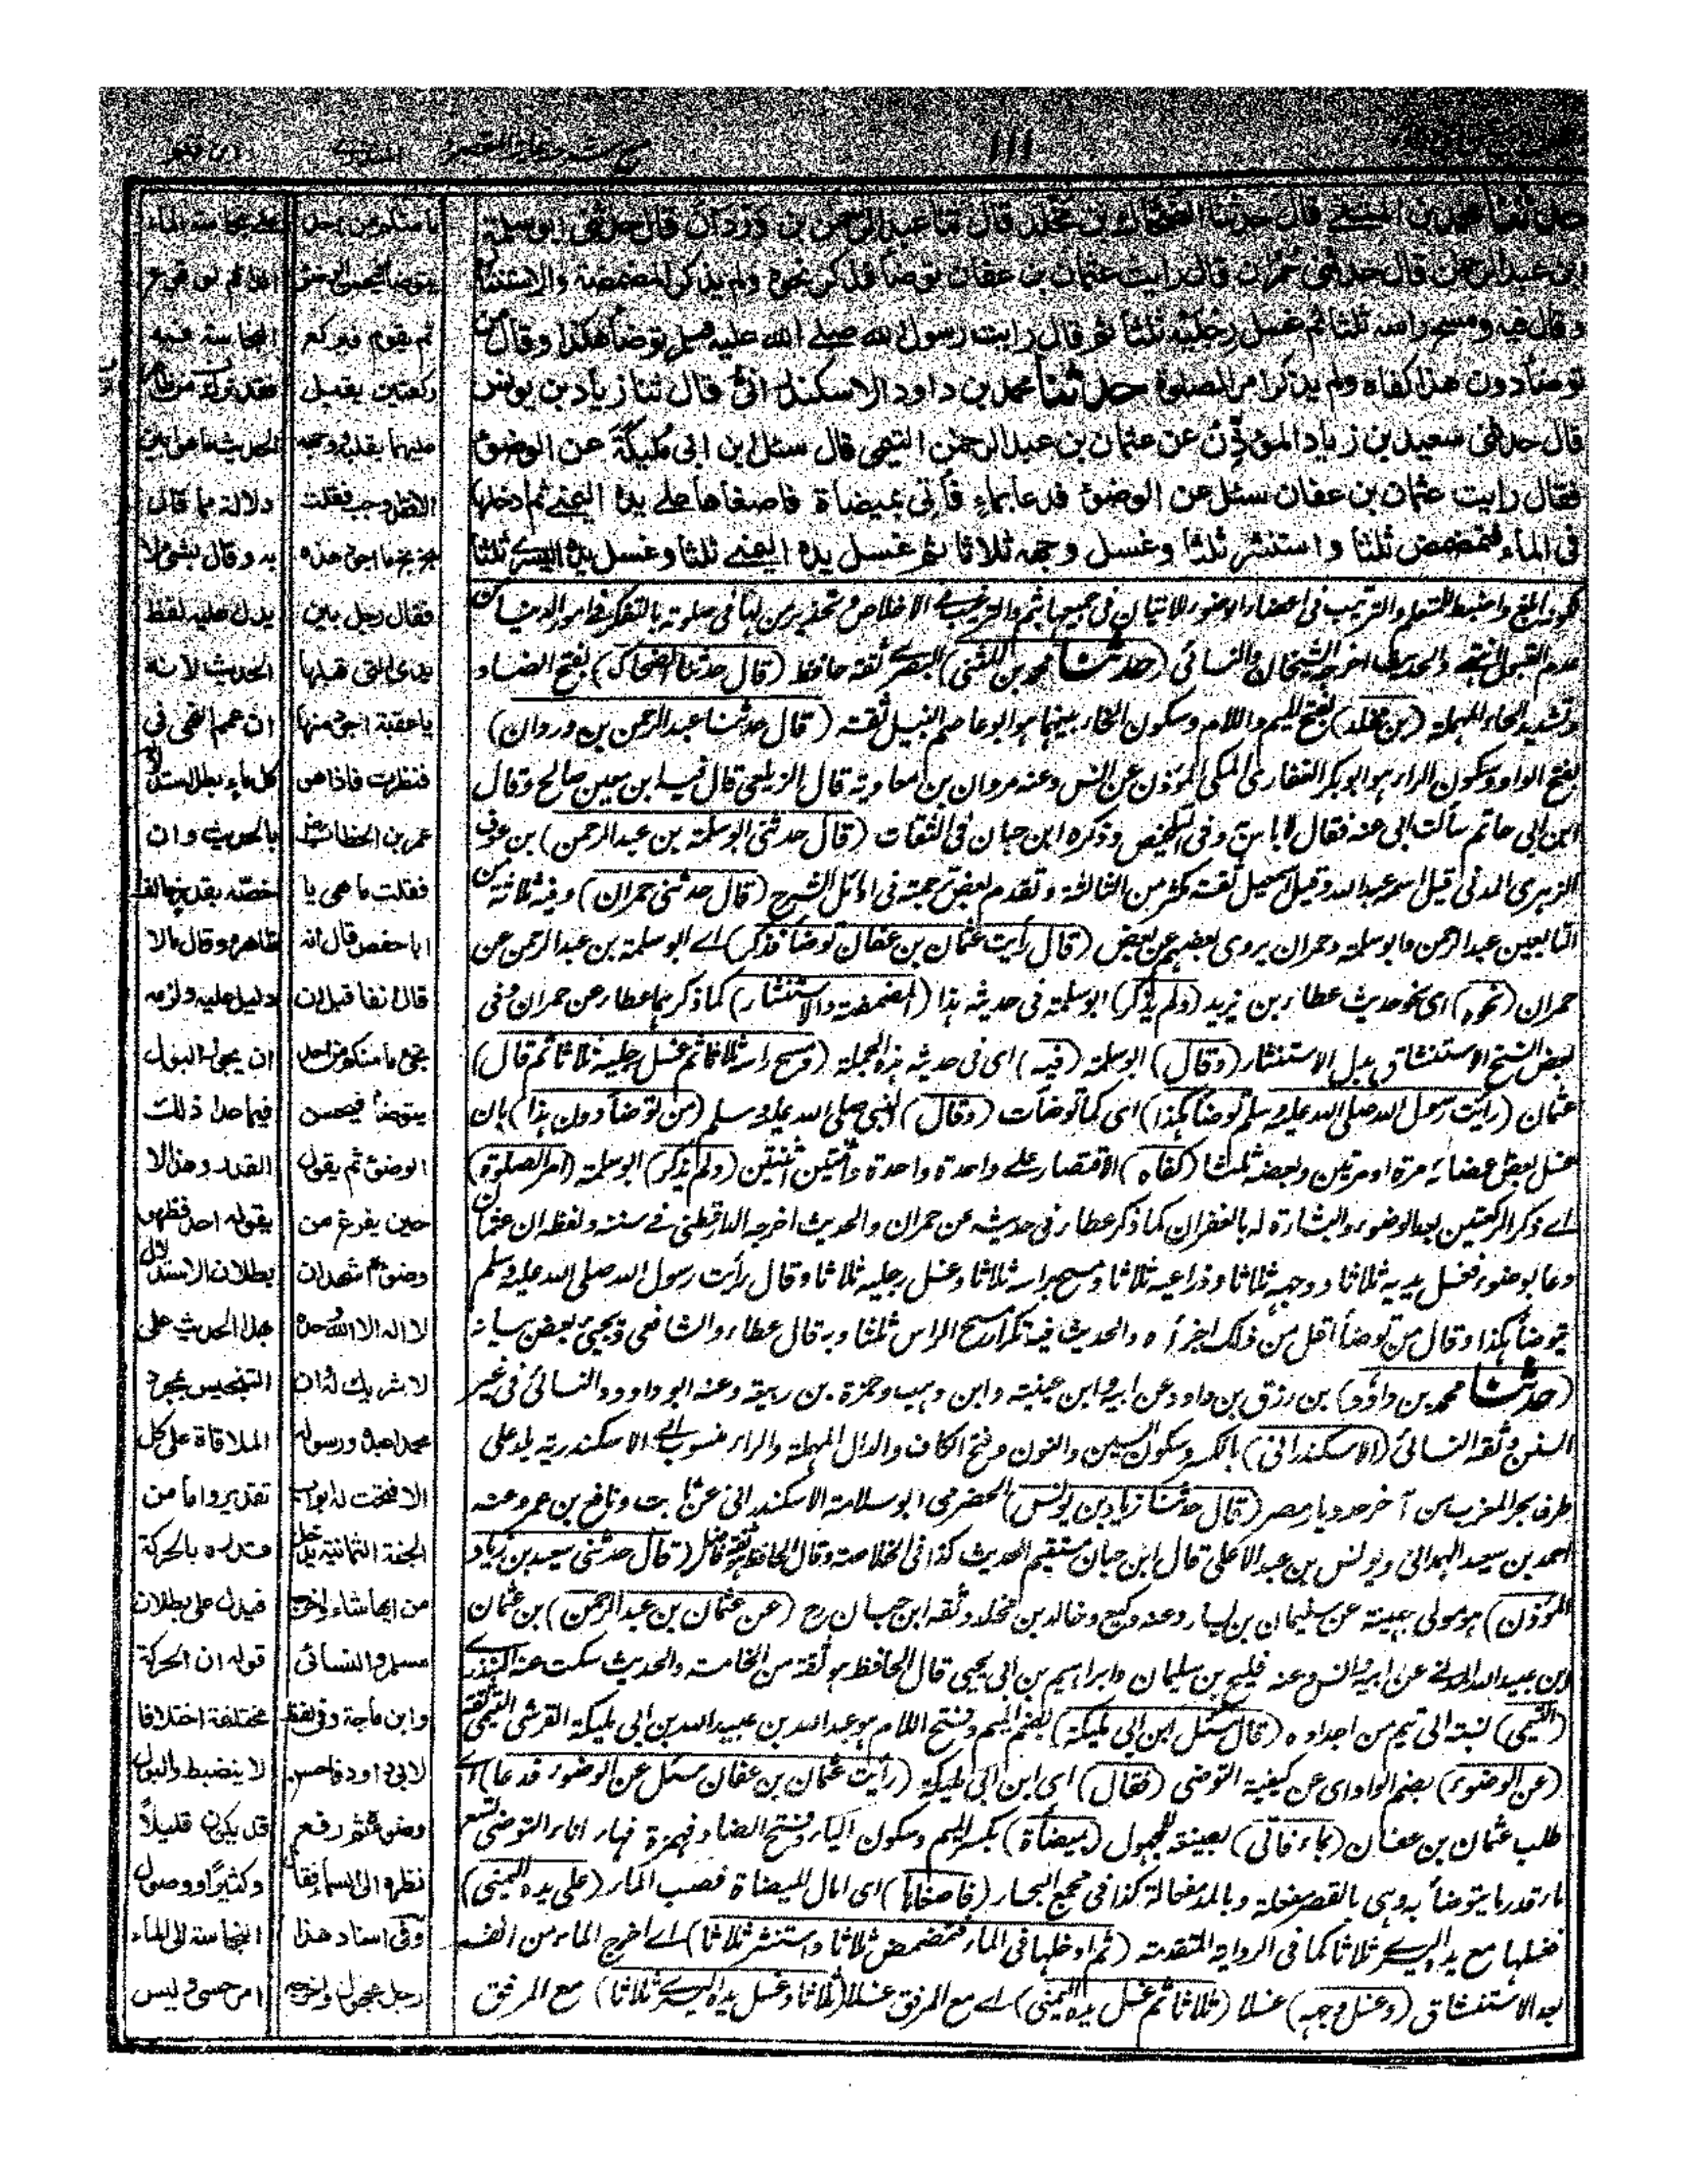 ١١١
حدثنا محمد بن المثنى قال حدثنا الضحاك بن مخلد قال ثنا عبد الرحمن بن وردان قال حدثني ابو سلمة
بن عبد الرحمن قال حدثني حمران قال رايت عثمان بن عفان توضأ فذكر نحوه ولم يذكر المضمضة والاستنثار
وقال فيه ومسح راسه ثلثا ثم غسل رجليه ثلثا ثم قال رايت رسول الله صلى الله عليه وسلم توضأ هكذا وقال من
توضأ دون هذا كفاه ولم يذكر امر الصلوة حدثنا محمد بن داود الاسكندراني قال ثنا زياد بن يونس
قال حدثني سعيد بن زياد المؤذن عن عثمان بن عبد الرحمن التيمي قال سئل ابن ابي مليكة عن الوضوء
فقال رايت عثمان بن عفان سئل عن الوضوء فدعا بماء فأتي بميضأة فاصغاها على يده اليمنى ثم ادخلها
في الماء فتمضمض ثلثا واستنثر ثلثا وغسل وجهه ثلاثا ثم غسل يده اليمنى ثلثا وغسل يده اليسرى ثلثا
عدم القبول والحديث اخرجه الشيخان والنسائي (حدثنا محمد بن المثنى) البصري ثقة حافظ (قال حدثنا الضحاك) بفتح الضاد
وتشديد الحاء المهملة (بن مخلد) بفتح الميم واللام وسكون الخاء بينهما هو ابو عاصم النبيل ثقة (قال حدثنا عبد الرحمن بن وردان)
بفتح الواو وسكون الراء هو ابو بكر الغفاري المكي المؤذن عن انس وعنه مروان بن معاوية قال الزيلعي قال فيه ابن معين صالح وقال
ابن ابي حاتم سألت ابي عنه فقال ما به بأس وفي التلخيص وذكره ابن حبان في الثقات (قال حدثني ابو سلمة بن عبد الرحمن) بن عوف
الزهري المدني قيل اسمه عبد الله وقيل اسمعيل ثقة مكثر من الثالثة وتقدم بعض ترجمته في اوائل الشرح (قال حدثني حمران) وفيه ثلاثة من
التابعين عبد الرحمن وابو سلمة وحمران يروى بعضهم عن بعض (قال رأيت عثمان بن عفان توضأ فذكر) اے ابو سلمة بن عبد الرحمن عن
حمران (نحوه) اى نحو حديث عطاء بن يزيد (ولم يذكر) ابو سلمة في حديثه هذا (المضمضة والاستنثار) كما ذكرهما عطاء عن حمران وفي
بعض النسخ الاستنشاق بدل الاستنثار (وقال) ابو سلمة (فيه) اى في حديثه هذه الجملة (ومسح راسه ثلاثا ثم غسل رجليه ثلاثا ثم قال)
عثمان (رأيت رسول الله صلى الله عليه وسلم توضأ هكذا) اى كما توضأت (وقال) النبي صلى الله عليه وسلم (من توضأ دون هذا) بان
غسل بعض اعضائه مرة او مرتين وبعضه ثلثا (كفاه) الاقتصار على واحدة واحدة واثنتين اثنتين (ولم يذكر) ابو سلمة (امر الصلوة)
اے ذكر الركعتين بعد الوضوء والبشارة له بالغفران كما ذكر عطاء في حديثه عن حمران والحديث اخرجه الدارقطني في سننه ولفظه ان عثمان
دعا بوضوء فغسل يديه ثلاثا ووجهه ثلاثا وذراعيه ثلاثا ومسح براسه ثلاثا وغسل رجليه ثلاثا وقال رأيت رسول الله صلى الله عليه وسلم
يتوضأ هكذا وقال من توضأ اقل من ذلك اجزأه والحديث فيه تكرار مسح الراس ثلثا وبه قال عطاء والشافعي ويجيئ بعض بيانه
(حدثنا محمد بن داود) بن رزق بن داود عن ابيه وابن عيينة وابن وهب وحمزة بن ربيعة وعنه ابو داود والنسائي في غير
السنن وثقه النسائي (الاسكندراني) بالكسر وسكون السين والنون وفتح الكاف والدال المهملة والراء منسوب الى الاسكندرية بلد على
طرف بحر المغرب من آخر حد ديار مصر (قال حدثنا زياد بن يونس) الحضرمي ابو سلامة الاسكندراني عن ثابت ونافع بن عمر وعنه
احمد بن سعيد الهمداني ويونس بن عبد الاعلى قال ابن حبان مستقيم الحديث كذا في الخلاصة وقال الحافظ ثقة فاضل (قال حدثني سعيد بن زياد
المؤذن) هو مولى جهينة عن سليمان بن يسار وعنه وكيع وخالد بن مخلد وثقه ابن حبان رح (عن عثمان بن عبد الرحمن) بن عثمان
ابن عبيد الله المدني عن ابيه وانس وعنه فليح بن سليمان وابراهيم بن ابي يحيى قال الحافظ هو ثقة من الخامسة والحديث سكت عنه المنذرى
(التيمي) نسبة الى تيم من اجداده (قال سئل ابن ابي مليكة) بضم الميم وفتح اللام هو عبد الله بن عبيد الله بن ابي مليكة القرشي التيمي ثقة
(عن الوضوء) بضم الواو اى عن كيفية التوضى (فقال) اى ابن ابي مليكة (رأيت عثمان بن عفان سئل عن الوضوء فدعا) اے
طلب عثمان بن عفان (بماء فاتي) بصيغة المجهول (بميضأة) بكسر الميم وسكون الياء وفتح الضاد فهمزة فهاء اناء التوضى تسع
ماء قدر ما يتوضأ به وهي بالقصر مفعلة وبالمد مفعالة كذا في مجمع البحار (فاصغاها) اى امال الميضاة فصب الماء (على يده اليمنى)
فغسلها مع يده اليسرى ثلاثا كما في الرواية المتقدمة (ثم ادخلها في الماء فتمضمض ثلاثا واستنثر ثلاثا) اے اخرج الماء من انفه
بعد الاستنشاق (وغسل وجهه) غسلا (ثلاثا ثم غسل يده اليمنى) اے مع المرفق غسلا (ثلاثا وغسل يده اليسرى ثلاثا) مع المرفق
ثم يقوم فيركع
ركعتين يقبل
عليهما بقلبه ووجهه
الا قد اوجب فقلت
بخ بخ ما اجود هذه
فقال رجل بين
يدى التي قبلها
يا عقبة اجود منها
فنظرت فاذا هو
عمر بن الخطاب
فقلت ما هي يا
ابا حفص قال انه
قال آنفا قبل ان
تجئ ما منكم من احد
يتوضأ فيحسن
الوضوء ثم يقول
حين يفرغ من
وضوءه اشهد ان
لا اله الا الله وحده
لا شريك له وان
محمدا عبده ورسوله
الا فتحت له ابواب
الجنة الثمانية يدخل
من ايها شاء واخرجه
مسلم والنسائى
وابن ماجة وفي لفظ
لابي داود فاحسن
وضوءه ثم رفع
نظره الى السماء فقال
وفي اسناد هذا
رجل مجهول واخرجه
النجاسة فيه
دلالة ما قال
به وقال بشئ لا
يدل عليه لفظ
الحديث لانه
ان عمم النهى في
كل ماء بطل استدلاله
بالحديث وان
خصه بقدر خالف
ظاهره وقال ما لا
دليل عليه ولزمه
ان يجوز البول
فيما عدا ذلك
القدر وهذا لا
يقوله احد فظهر
بطلان الاستدلال
بهذا الحديث على
التنجيس بمجرد
الملاقاة على كل
تقدير واما من
قدره بالحركة
فيدل على بطلان
قوله ان الحركة
مختلفة اختلافا
لا ينضبط والبول
قد يكون قليلاً
وكثيراً ووصول
النجاسة الى الماء
امر حسي وليس